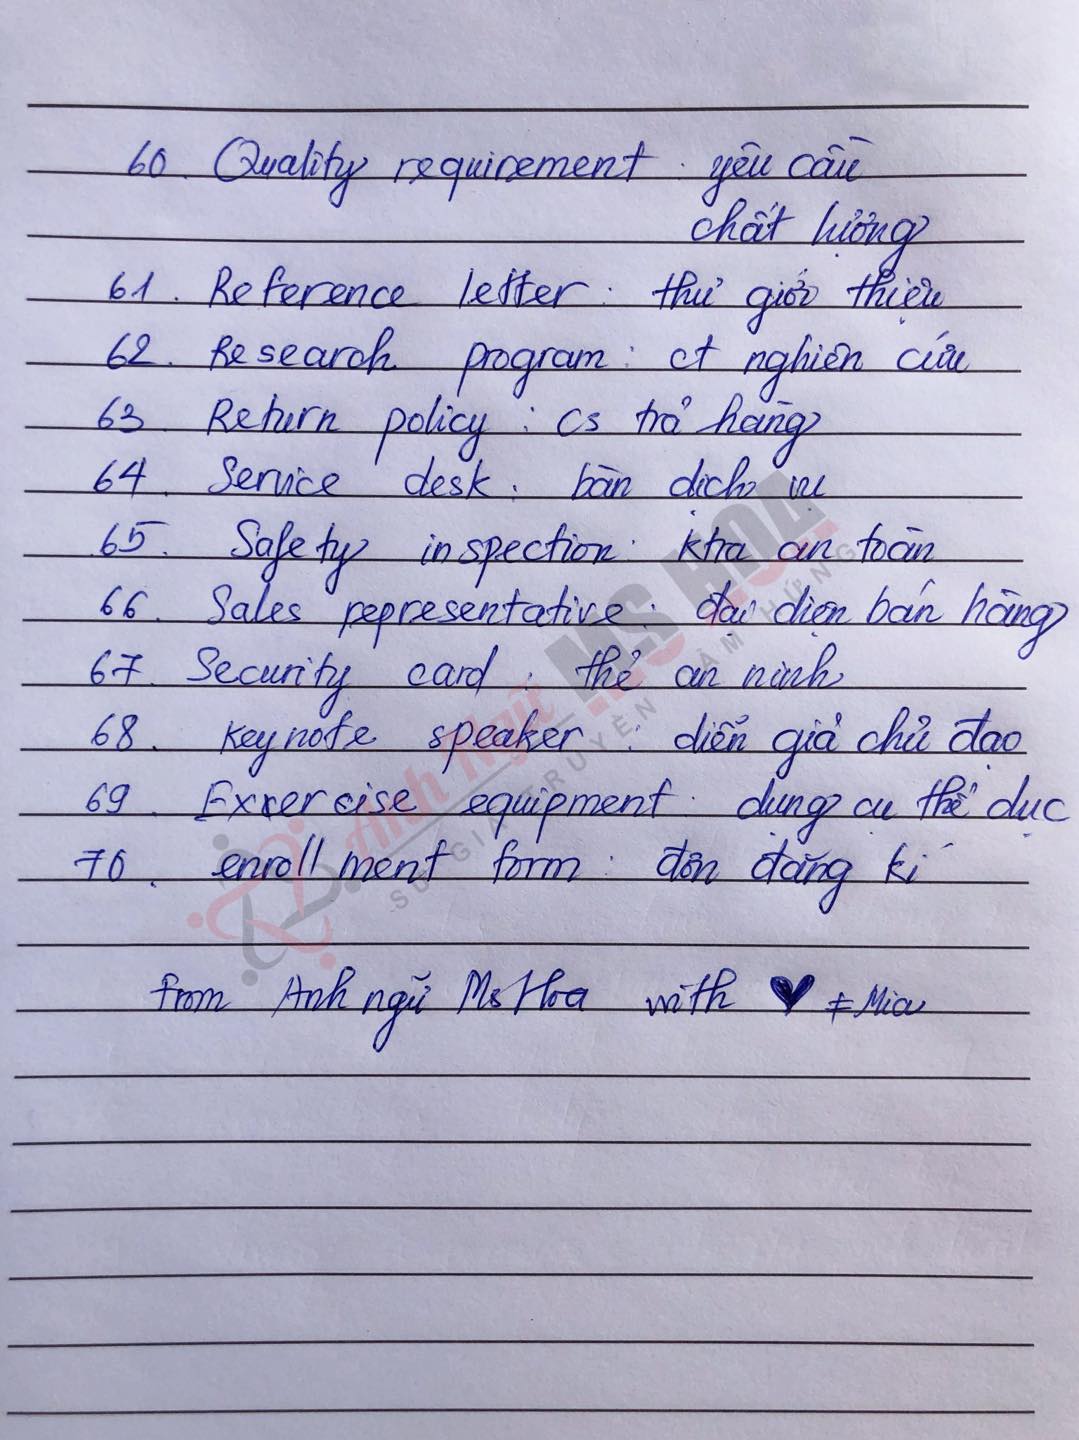 60. Quality requirement : yêu cầu
chất lượng
61. Reference letter : thư giới thiệu
62. Research program : ct nghiên cứu
63. Return policy : cs trả hàng
64. Service desk : bàn dịch vụ
65. Safety inspection : ktra an toàn
66. Sales representative : đại diện bán hàng
67. Security card : thẻ an ninh
68. Keynote speaker : diễn giả chủ đạo
69. Exxercise equipment : dụng cụ thể dục
70. enrollment form : đơn đăng kí
from Anh ngữ Ms Hoa with ♥ ≠ Mia
Anh Ngữ MS HOA
SỨ GIẢ TRUYỀN CẢM HỨNG